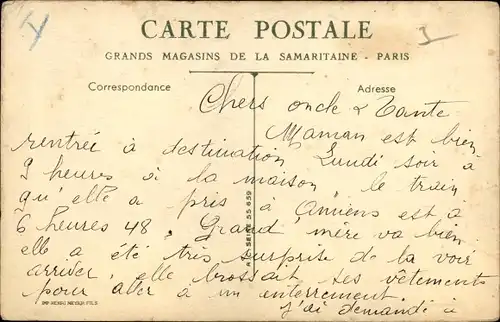 CARTE POSTALE
GRANDS MAGASINS DE LA SAMARITAINE - PARIS
Correspondance
Adresse
Chers oncle & Tante
Maman est bien
rentrée à destination Lundi soir à
9 heures à la maison, le train
qu'elle a pris à Amiens est à
6 heures 48. Grand' mère va bien
elle a été très surprise de la voir
arriver, elle brossait ses vêtements
pour aller à un enterrement.
J'ai demandé à
IMP. HENRI MEYER FILS
R.C. SEINE 55 659